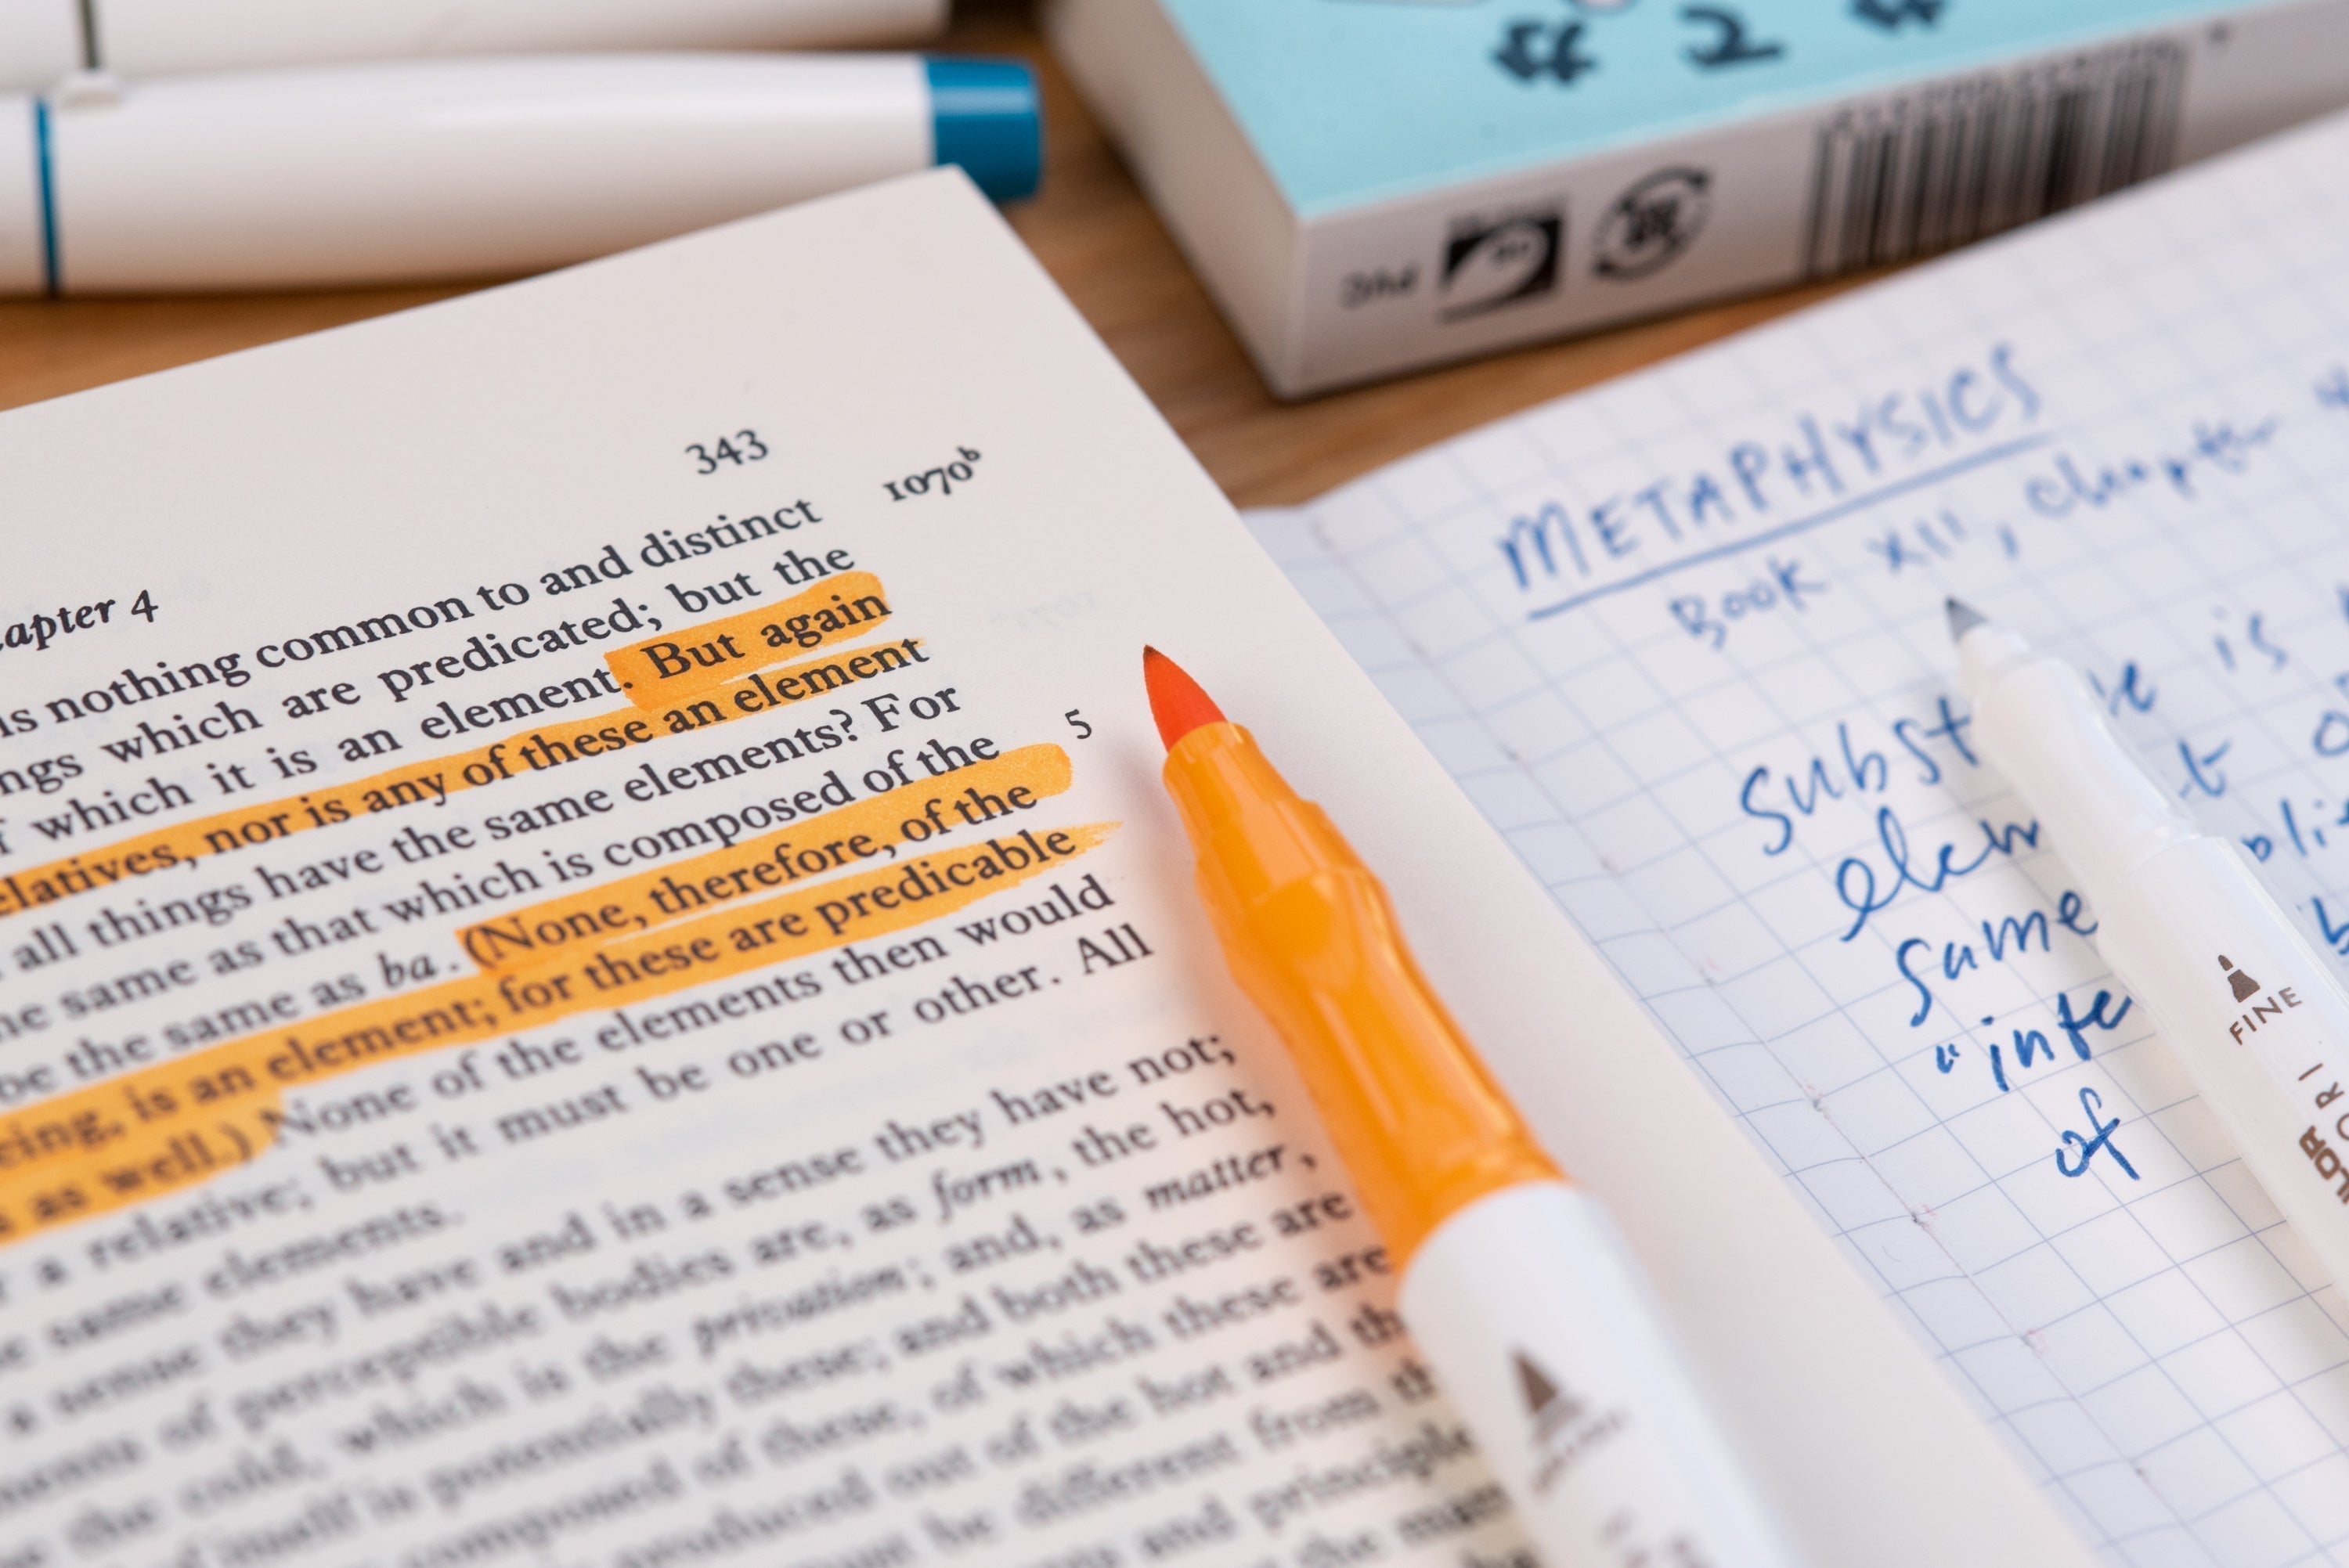 343
1070ᵇ
apter 4
is nothing common to and distinct
ngs which are predicated; but the
f which it is an element. But again
elatives, nor is any of these an element
all things have the same elements? For
ne same as that which is composed of the
5
be the same as ba. (None, therefore, of the
eing, is an element; for these are predicable
s as well.) None of the elements then would
r a relative; but it must be one or other. All
e same elements.
a sense they have and in a sense they have not;
ments of perceptible bodies are, as form, the hot,
the cold, which is the privation; and, as matter,
of itself is potentially these; and both these are
composed of these, of which these are
produced out of the hot and th
must be different from th
and principle
the
METAPHYSICS
Book XII, chapter 4
subst e is
elem t
same
"inte
of
FINE
PVC